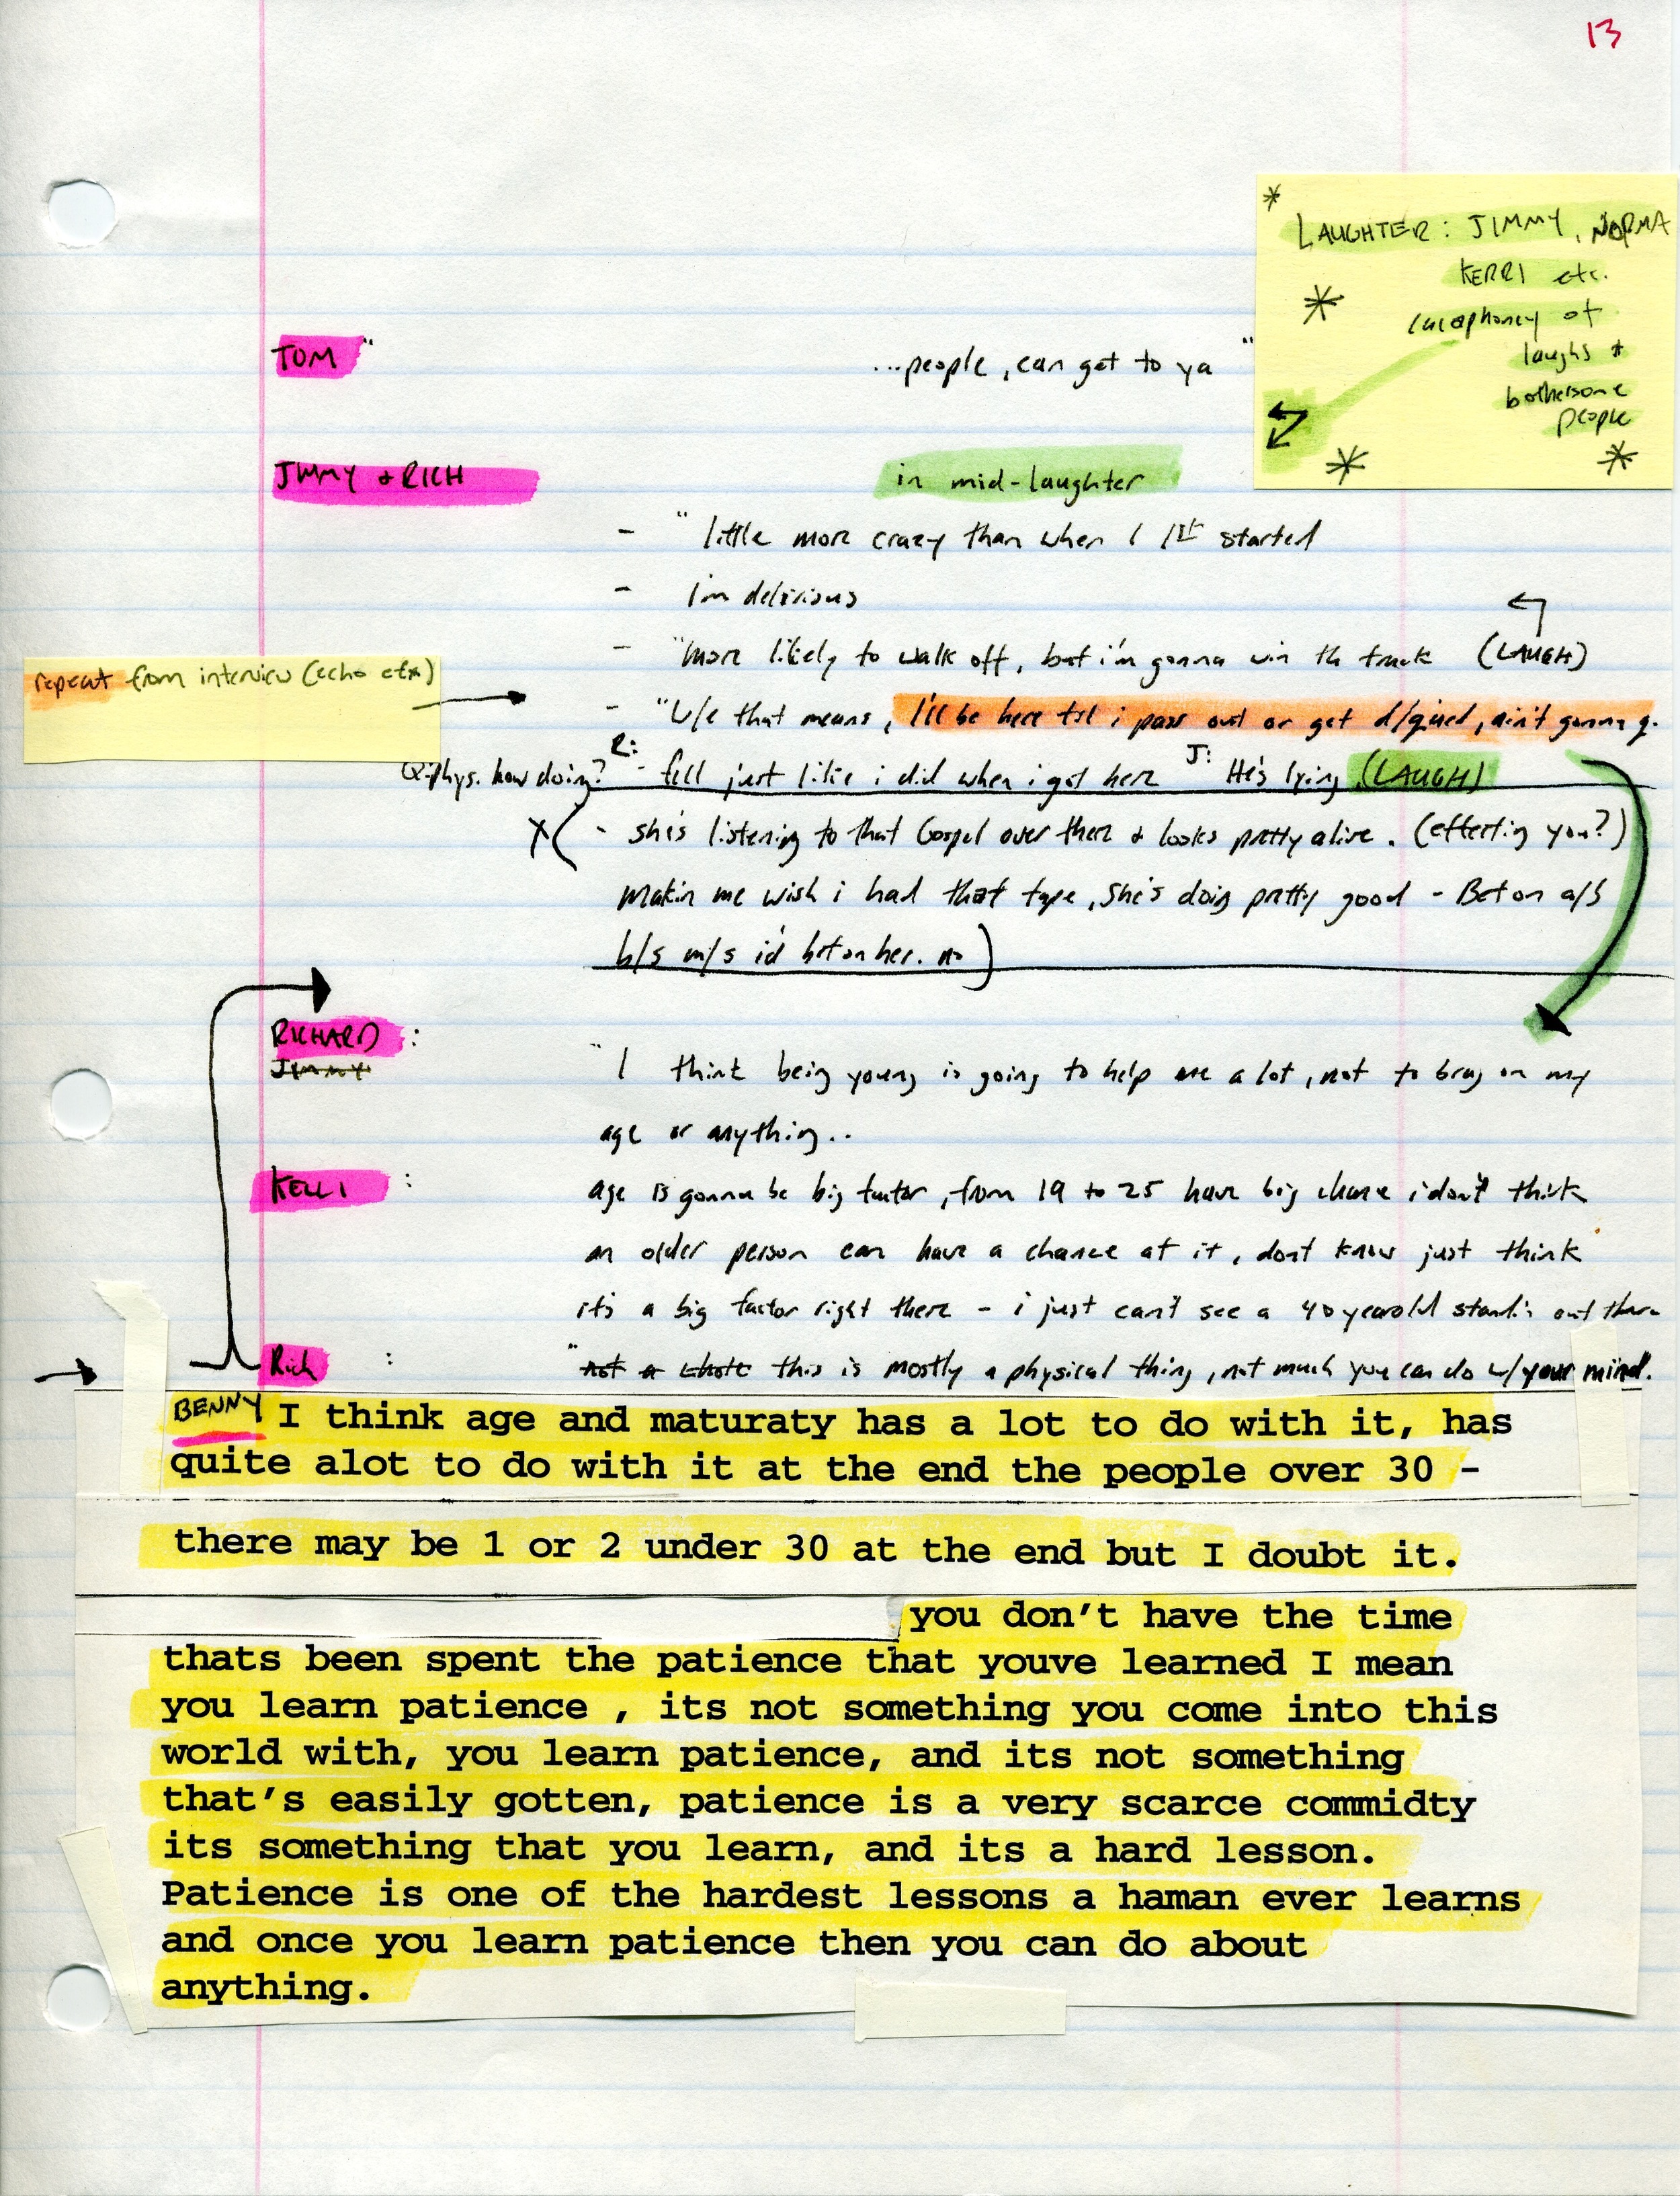 13
*
LAUGHTER: JIMMY, NORMA
KERRI etc.
cacaphoney of
laughs +
bothersome
people
TOM " ...people, can get to ya "
JIMMY + RICH in mid-laughter
- "little more crazy than when I 1st started
- I'm delirious
- "more likely to walk off, but i'm gonna win th truck (LAUGH)
repeat from interview (echo etc)
- "w/e that means, I'll be here til i pass out or get d/q'ued, ain't gonna q.
Q: phys. how doing? R: - fell just like i did when i got here J: He's lying (LAUGH)
X ( - she's listening to that Gospel over there + looks pretty alive. (effecting you?)
makin me wish i had that tape, she's doing pretty good - Bet on a/s
b/s m/s i'd bet on her. no )
RICHARD :
Jimmy
"I think being young is going to help me a lot, not to brag on my
age or anything..
KELLI : age is gonna be big factor, from 19 to 25 have big chance i don't think
an older person can have a chance at it, dont know just think
it's a big factor right there - i just can't see a 40 year old standin out there
Rich : "not a whole this is mostly a physical thing, not much you can do w/ your mind.
BENNY I think age and maturaty has a lot to do with it, has
quite alot to do with it at the end the people over 30 -
there may be 1 or 2 under 30 at the end but I doubt it.
you don't have the time
thats been spent the patience that youve learned I mean
you learn patience , its not something you come into this
world with, you learn patience, and its not something
that's easily gotten, patience is a very scarce commidty
its something that you learn, and its a hard lesson.
Patience is one of the hardest lessons a haman ever learns
and once you learn patience then you can do about
anything.